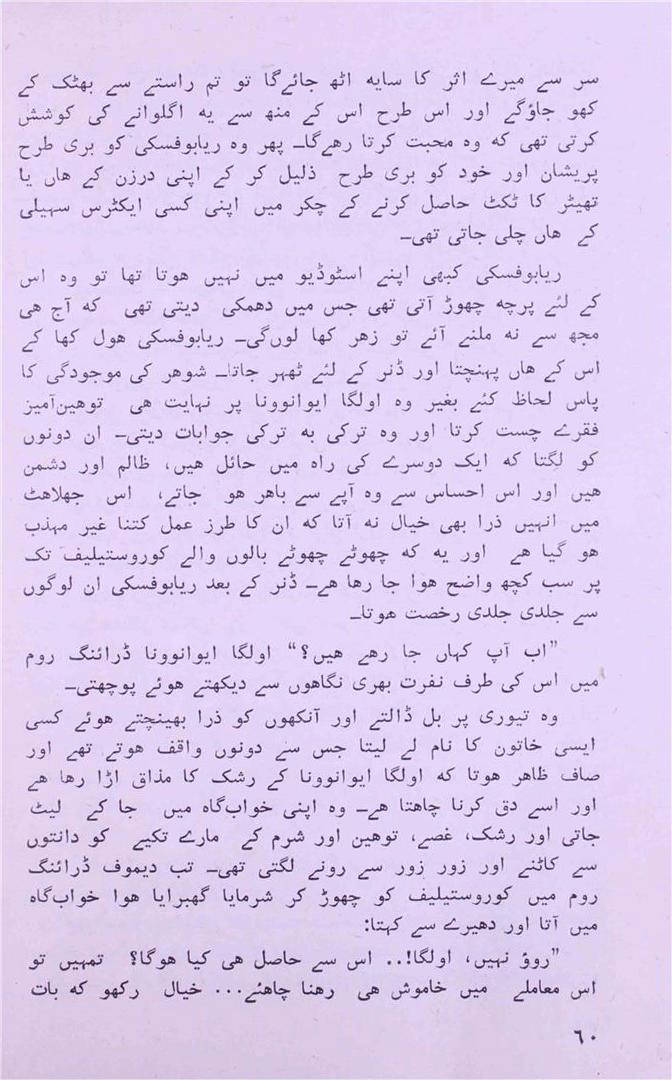 سر سے میرے اثر کا سایه اٹھ جائےگا تو تم راستے سے بھٹک کے
کھو جاؤگے اور اس طرح اس کے منھ سے یه اگلوانے کی کوشش
کرتی تھی که وه محبت کرتا رهےگا۔ پھر وه ریابوفسکی کو بری طرح
پریشان اور خود کو بری طرح ذلیل کر کے اپنی درزن کے هاں یا
تھیٹر کا ٹکٹ حاصل کرنے کے چکر میں اپنی کسی ایکٹرس سہیلی
کے هاں چلی جاتی تھی۔
ریابوفسکی کبھی اپنے اسٹوڈیو میں نہیں هوتا تھا تو وه اس
کے لئے پرچه چھوڑ آتی تھی جس میں دھمکی دیتی تھی که آج هی
مجھ سے نه ملنے آئے تو زهر کھا لوںگی۔ ریابوفسکی هول کھا کے
اس کے هاں پہنچتا اور ڈنر کے لئے ٹھہر جاتا۔ شوهر کی موجودگی کا
پاس لحاظ کئے بغیر وه اولگا ایوانوونا پر نہایت هی توهینآمیز
فقرے چست کرتا اور وه ترکی به ترکی جوابات دیتی۔ ان دونوں
کو لگتا که ایک دوسرے کی راه میں حائل هیں، ظالم اور دشمن
هیں اور اس احساس سے وه آپے سے باهر هو جاتے، اس جھلاهٹ
میں انہیں ذرا بھی خیال نه آتا که ان کا طرز عمل کتنا غیر مہذب
هو گیا هے اور یه که چھوٹے چھوٹے بالوں والے کوروستیلیف تک
پر سب کچھ واضح هوا جا رها هے۔ ڈنر کے بعد ریابوفسکی ان لوگوں
سے جلدی جلدی رخصت هوتا۔
”اب آپ کہاں جا رهے هیں؟“ اولگا ایوانوونا ڈرائنگ روم
میں اس کی طرف نفرت بھری نگاهوں سے دیکھتے هوئے پوچھتی۔
وه تیوری پر بل ڈالتے اور آنکھوں کو ذرا بھینچتے هوئے کسی
ایسی خاتون کا نام لے لیتا جس سے دونوں واقف هوتے تھے اور
صاف ظاهر هوتا که اولگا ایوانوونا کے رشک کا مذاق اڑا رها هے
اور اسے دق کرنا چاهتا هے۔ وه اپنی خوابگاه میں جا کے لیٹ
جاتی اور رشک، غصے، توهین اور شرم کے مارے تکیے کو دانتوں
سے کاٹنے اور زور زور سے رونے لگتی تھی۔ تب دیموف ڈرائنگ
روم میں کوروستیلیف کو چھوڑ کر شرمایا گھبرایا هوا خوابگاه
میں آتا اور دھیرے سے کہتا:
”روؤ نہیں، اولگا!.. اس سے حاصل هی کیا هوگا؟ تمہیں تو
اس معاملے میں خاموش هی رهنا چاهئے... خیال رکھو که بات
٦٠